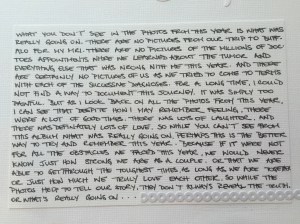 WHAT YOU DON'T SEE IN THE PHOTOS FROM THIS YEAR IS WHAT WAS
REALLY GOING ON. THERE ARE NO PICTURES FROM OUR TRIP TO BUFF-
ALO FOR MY MRI. THERE ARE NO PICTURES OF THE MILLIONS OF DOC-
TORS APPOINTMENTS WHERE WE LEARNED ABOUT THE TUMOR AND
EVERYTHING ELSE THAT WAS WRONG WITH ME THIS YEAR. AND THERE
ARE CERTAINLY NO PICTURES OF US AS WE TRIED TO COME TO TERMS
WITH EACH OF THE SUCCESSIVE DIAGNOSES. FOR A LONG TIME, I COULD
NOT FIND A WAY TO DOCUMENT THIS JOURNEY. IT WAS SIMPLY TOO
PAINFUL. BUT AS I LOOK BACK ON ALL THE PHOTOS FROM THIS YEAR,
I CAN SEE THAT DESPITE HOW I MAY REMEMBER FEELING, THERE
WERE A LOT OF GOOD TIMES. THERE WAS LOTS OF LAUGHTER, AND
THERE WAS DEFINITELY LOTS OF LOVE. SO WHILE YOU CAN'T SEE FROM
THIS ALBUM WHAT WAS REALLY GOING ON, PERHAPS THIS IS THE BETTER
WAY TO TRY AND REMEMBER THIS YEAR. BECAUSE IF IT WERE NOT
FOR ALL THE OBSTACLES WE FACED THIS YEAR, WE WOULD NEVER
KNOW JUST HOW STRONG WE ARE AS A COUPLE. OR THAT WE ARE
ABLE TO GET THROUGH THE TOUGHEST THINGS AS LONG AS WE ARE TOGETHER
OR JUST HOW MUCH WE TRULY LOVE EACH OTHER. SO WHILE THE
PHOTOS HELP TO TELL OUR STORY, THEY DON'T ALWAYS REVEAL THE TRUTH.
OR WHAT'S REALLY GOING ON...